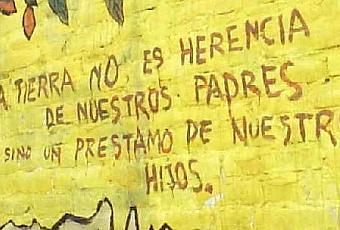 A TIERRA NO ES HERENCIA
DE NUESTROS PADRES
SINO UN PRESTAMO DE NUESTR
HIJOS.